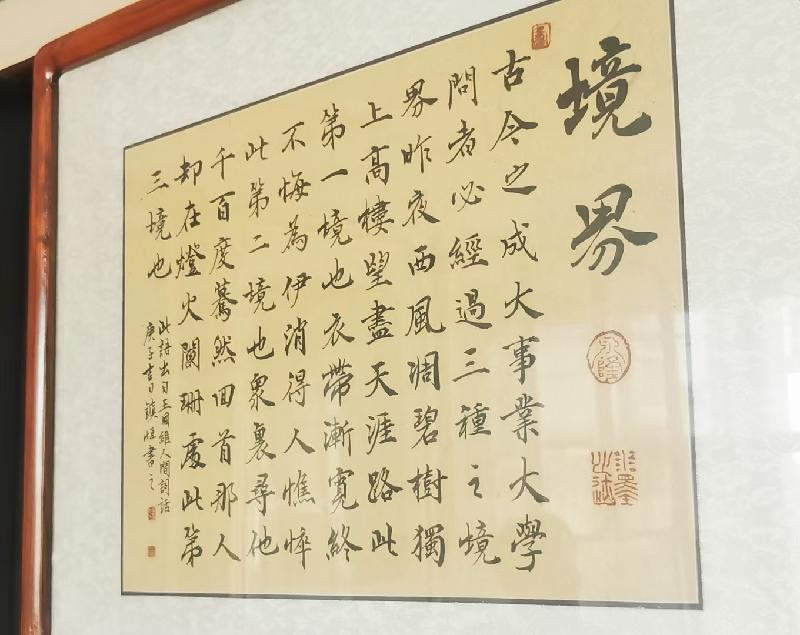 境界
古今之成大事業大學
問者必經過三種之境
界昨夜西風凋碧樹獨
上高樓望盡天涯路此
第一境也衣帶漸寬終
不悔為伊消得人憔悴
此第二境也眾裏尋他
千百度驀然回首那人
却在燈火闌珊處此第
三境也
此語出自王國維人間詞話
庚子吉日鎮恒書之